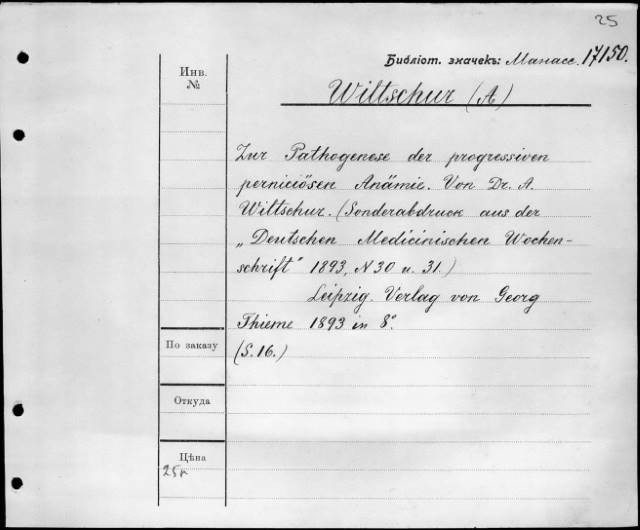 25
Библіот. значекъ: Манасс. 17150.
Инв.
№
Wiltschur (A)
Zur Pathogenese der progressiven
perniciösen Anämie. Von Dr. A.
Wiltschur. (Sonderabdruck aus der
„Deutschen Medicinischen Wochen-
schrift" 1893, N 30 u. 31.)
Leipzig. Verlag von Georg
Thieme 1893 in 8°.
По заказу
(S. 16.)
Откуда
Цѣна
25к